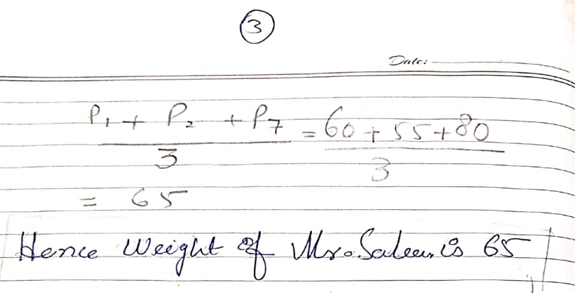 3
Date:
P₁ + P₂ + P7 = 60 + 55 + 80
3 3
= 65
Hence Weight of Mr. Saleem is 65